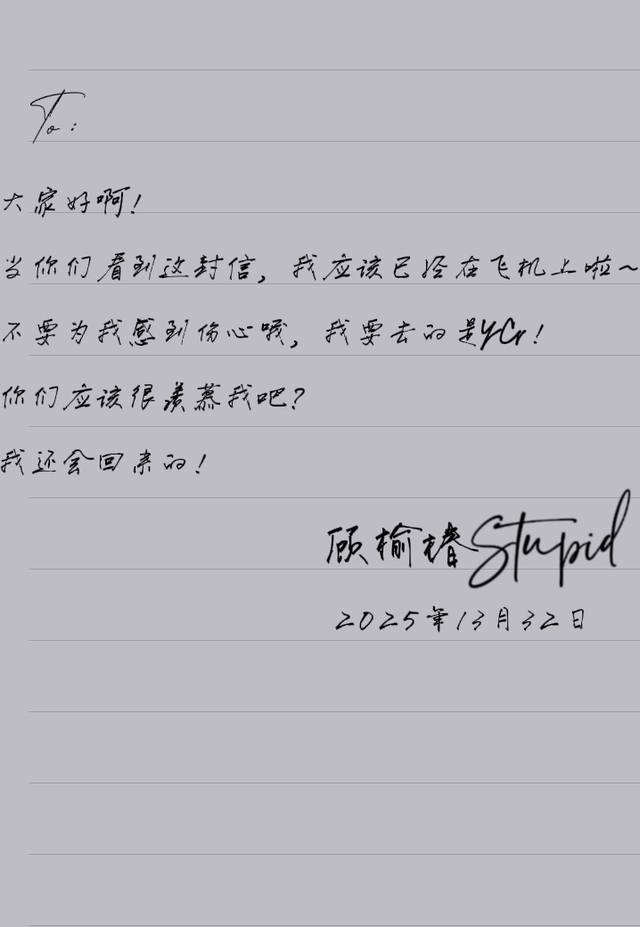 To:
大家好啊!
当你们看到这封信, 我应该已经在飞机上啦~
不要为我感到伤心哦, 我要去的是YCr!
你们应该很羡慕我吧?
我还会回来的!
顾榆椿 Stupid
2025年13月32日